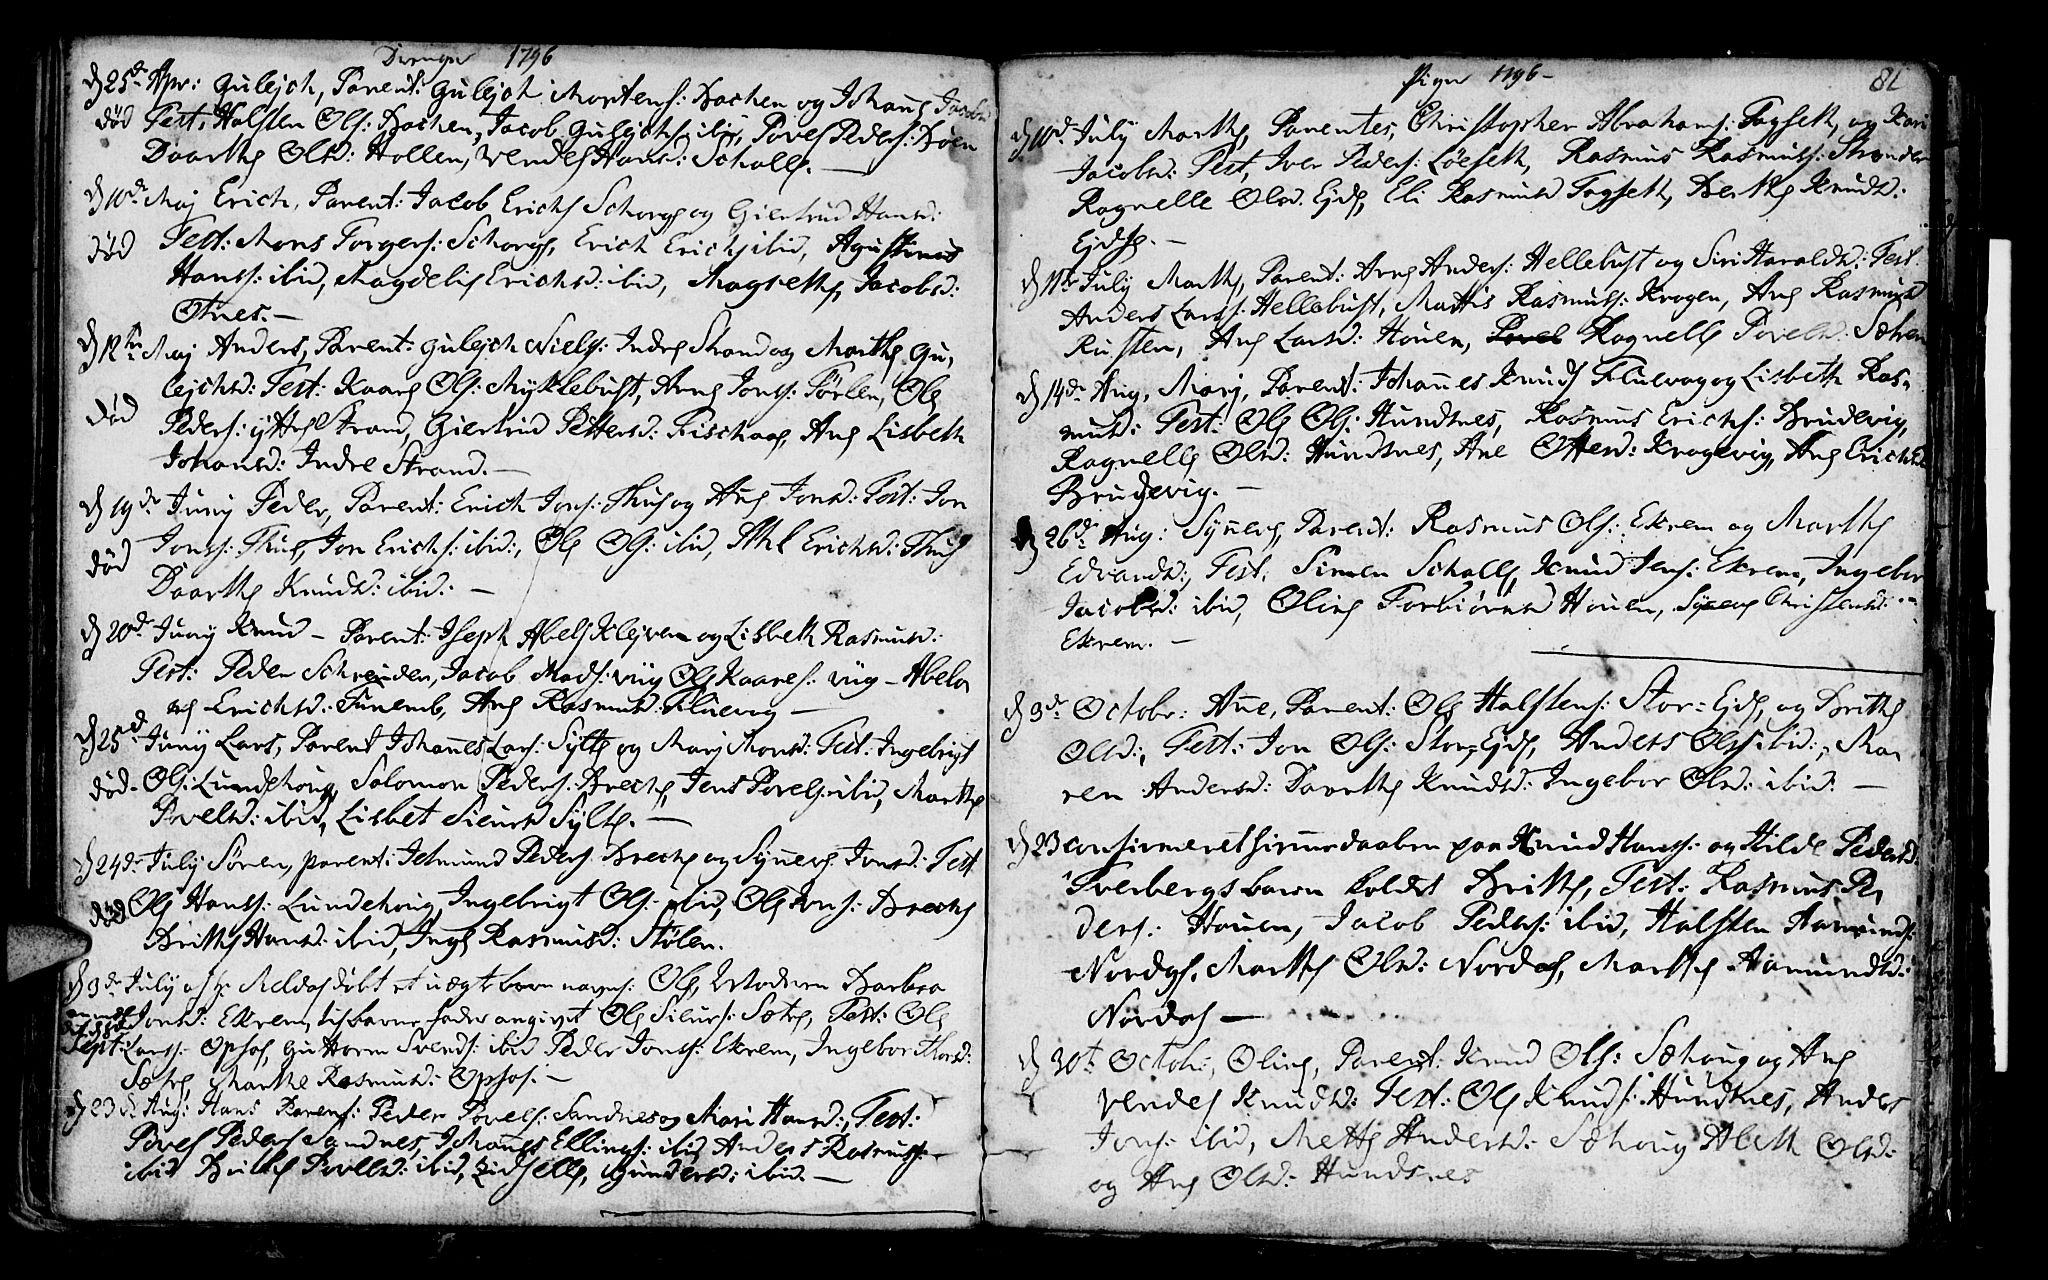 Drenger 1796
d 25de Apr: Gulejch, Parent: Gulejch Mortens: Bachen og Johane Jacobsd
død Test. Halsten Ols: Bachen, Jacob Gulejchs ibid, Povel Peders: Böen
Daarthe Olsd: Hollen, Vendel Hansd: Scholle. —
d 10de Maj Erich, Parent: Jacob Erichs Schorge og Giertrud Hansd:
død Test: Mons Torgers: Schorge, Erich Erichs ibid, Agustinus
Hanss: ibid, Magdeli Erichsd: ibid, Magrethe Jacobsd:
Otnes. —
d 12te Maj Anders, Parent: Gulejch Niels: Indre Strand og Marthe Gu,
lejchsd: Test: Kaare Ols: Myklebust, Arne Jonss: Förlen, Ole
død Peders: ytre Strand, Giertrud Pettersd: Fischaae, Ane Lisbeth
Johansd: Indre Strand. —
d 19de Junij Peder, Parent: Erich Jons: Thue og Ane Jonsd: Test: Jon
død Jonss: Thue, Jon Erichs: ibid:, Ole Ols: ibid, Sthl Erichsd: Thue
Daarthe Knudsd: ibid: —
d 20de Junij Knud — Parent: Joseph Abels Klejven og Lisbeth Rasmusd:
Test: Peder Schrenden, Jacob Mads: viig Ole Kaares: viig — Abelo
ne Erichsd: Furenb, Ane Rasmusd: Fluevog —
d 25d Junij Lars, Parent Johannes Lars: Sylte og Mari Monsd: Test: Ingebrigt
død. Ols: Lundehoug, Salomon Peders: Breche, Jens Povels: ibid, Marthe
Povelsd: ibid, Lisbet Siursd Sylte. —
d 24de Julij Sören, parent: Jetmund Peders Breche og Synneve Jonsd: Test
død Ole Hanss: Lundehoug, Ingebrigt Ols: ibid, Ole Jons: Breche
Britthe Hansd: ibid, Inge Rasmusd: Stölen.
d 3de Julij Meldal döbt et uægte barn navnl: Ole, Moderen Barbra
Jonsd: Ekrem, til barne fader angivet Ole Siurs: Sætre, Test: Ole
Sept: Larss: Ophos, Guttorm Svends: ibid Peder Jonss: Ekrem, Ingebor Thorsd:
Sætre, Marthe Rasmusd: Ophos: —
d 23d Aug: Hans Parent: Peder Povels: Sandnes og Mari Hansd:, Test:
Povel Peders Sandnes, Johannes Ellings: ibid Anders Rasmuss:
ibid Britthe Povelsd: ibid, Zidselle Gundersd: ibid. —

Piger 1796 —
81
d 10de July Marthe, Parentes, Christopher Abrahams: Fagseth, og Kari
Jacobsd: Test, Iver Peders: Löeseth, Rasmus Rasmuss: Stranden
Ragnelle Olsd. Ejde, Eli Rasmusd Fagseth, Berthe Knudsd:
Ejde. —
d 17de July Marthe, Parent: Arne Anders: Hellebust og Siri Haraldsd: Test
Anders Larss: Hellebust, Mattis Rasmuss: Krogen, Ane Rasmusd
Rusten, Ane Larsd: Houen, Povel Ragnelle Povelsd: Sæhen
d 14de Aug, Marj, Parent: Johannes Knuds Fluevog og Lisbeth Ras-
musd: Test: Ole Ols: Hundsnes, Rasmus Erichs: Brudevig,
Ragnelle Olsd: Hundsnes, Ane Ottersd: Krogevig, Ane Erichsd
Brudevig. —
d 26de Aug: Synneve, Parent: Rasmus Ols: Ekrem og Marthe
Edvardsd:, Test: Simen Scholle, Knud Jens: Ekrem, Ingebor
Jacobsd: ibid, Oline Torbiörnsd Houen, Syneve Christensd:
Ekrem. —
d 9de Octobr: Ane, Parent: Ole Halstens: Stor-Ejde, og Britthe
Olsd:, Test: Jon Ols: Stor-Ejde, Anders Olss ibid:, Ma-
ren Andersd: Daarthe Knudsd: Ingebor Olsd: ibid: —
d 23 confirmeret hiemedaaben paa Knud Hanss: og Hilde Pedersd:
Tverbergs barn kaldet Britthe, Test: Rasmus Pe
ders: Houen, Jacob Peders: ibid, Halsten Aamunds:
Nordal. Marthe Olsd: Nordal, Marthe Aamundsd:
Nordal —
d 30t Octob:, Oline, Parent: Knud Ols: Sæhoug og Ane
Vendel Knudsd: Test: Ole Knuds: Hundsnes, Anders
Jons: ibid, Mette Andersd: Sæhoug Abeth Olsd:
og Ane Olsd: Hundsnes